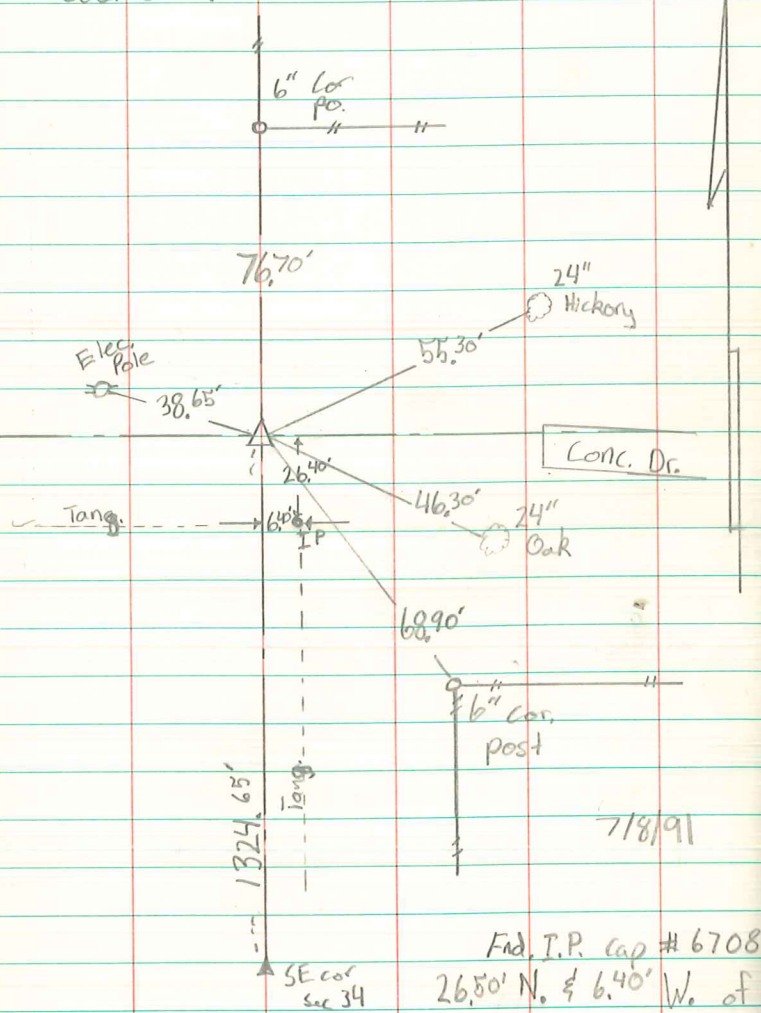 6" Cor
po.
76.70'
24"
Hickory
55.30'
Elec.
Pole
38.65'
Conc. Dr.
26.40'
46.30'
24"
Oak
Tang.
6.40'
IP
68.90'
6" Cor.
post
1324.65'
Tang.
7/8/91
SE cor
sec 34
Fnd. I.P. cap # 6708
26.50' N. & 6.40' W. of